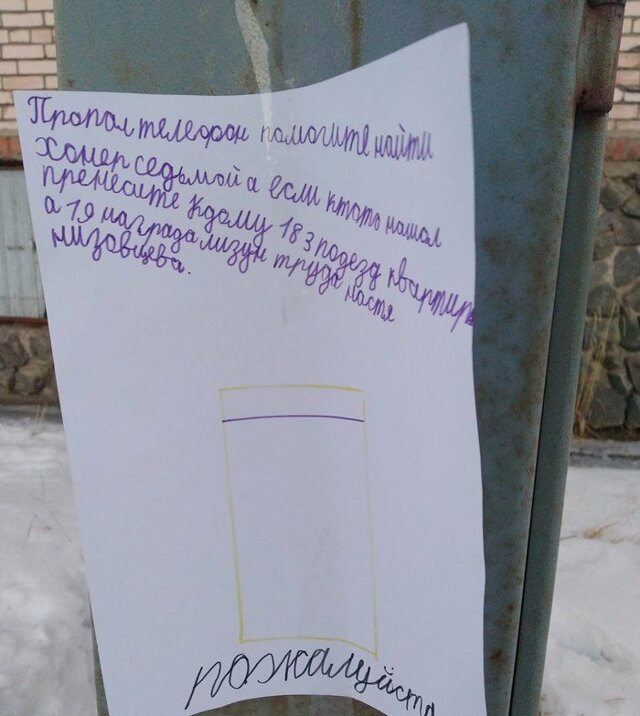 Пропал телефон помогите найти
Хонер седьмой а если ктото нашол
пренесите кдому 18 3 подезд квартира
а 19 награда лизун труда настя
низовцева.
пожалуйста